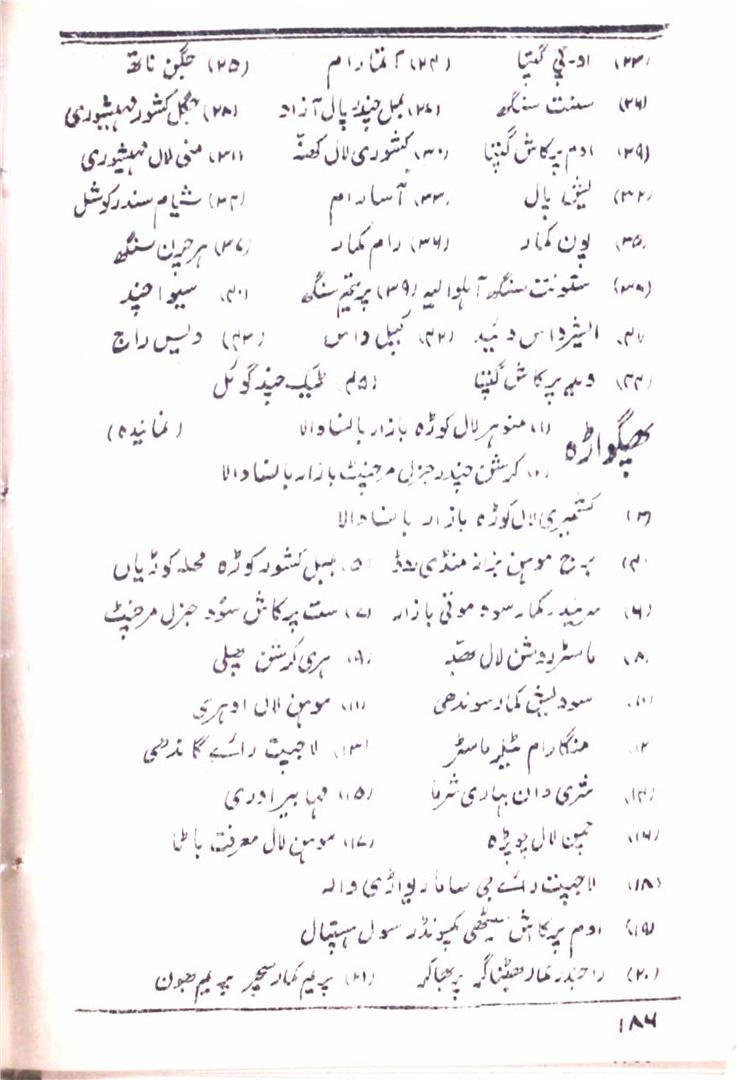 (۲۳) او۔پی گپتا (۲۴) آتما رام (۲۵) جگن ناتھ
(۲۶) سنت سنگھ (۲۷) بمل چندر پال آزاد (۲۸) جگل کشور مہیشوری
(۲۹) اوم پرکاش گپتا (۳۰) کشوری لال کھنہ (۳۱) منی لال مہیشوری
(۳۲) یش پال (۳۳) آسا رام (۳۴) شیام سندر کوشل
(۳۵) پون کمار (۳۶) رام کمار (۳۷) ہرچرن سنگھ
(۳۸) ستونت سنگھ آہلوالیہ (۳۹) پریتم سنگھ (۴۰) سیوا چند
۴۱) ایشرداس دئید (۴۲) کپل داس (۴۳) دیس راج
(۴۴) وید پرکاش گپتا (۴۵) ٹیک چند گوئل
پھگواڑہ (۱) منوہر لال کوڑہ بازار بانساوالا (نمائیندہ)
(۲) کرشن چندر جنرل مرچنٹ بازار بانساوالا
(۳) کشمیری لال کوڑہ بازار بانساوالا
(۴) برج موہن بزاز منڈی روڈ (۵) جبل کشور کوڑہ محلہ کوڑیاں
(۶) سریندر کمار سود موتی بازار (۷) ست پرکاش سُود جنرل مرچنٹ
(۸) ماسٹر روشن لال (۹) ہری کرشن
(۱۰) سودیش کمار سوندھی (۱۱) موہن لال اوہری
(۱۲) منگارام ٹیلر ماسٹر (۱۳) لاجپت رائے گاندھی
(۱۴) شری وان بہاری شرما (۱۵) مہابیر اوری
(۱۶) چمن لال چوپڑہ (۱۷) موہن لال معرفت باٹا
(۱۸) لاجپت رائے بی ساما ریواڑی والہ
(۱۹) اوم پرکاش سیٹھی کمپونڈر سول ہسپتال
(۲۰) راجندر کمار بھٹناگر پربھاکر (۲۱) پریم کمار سچر پریم بھون
۱۸۶